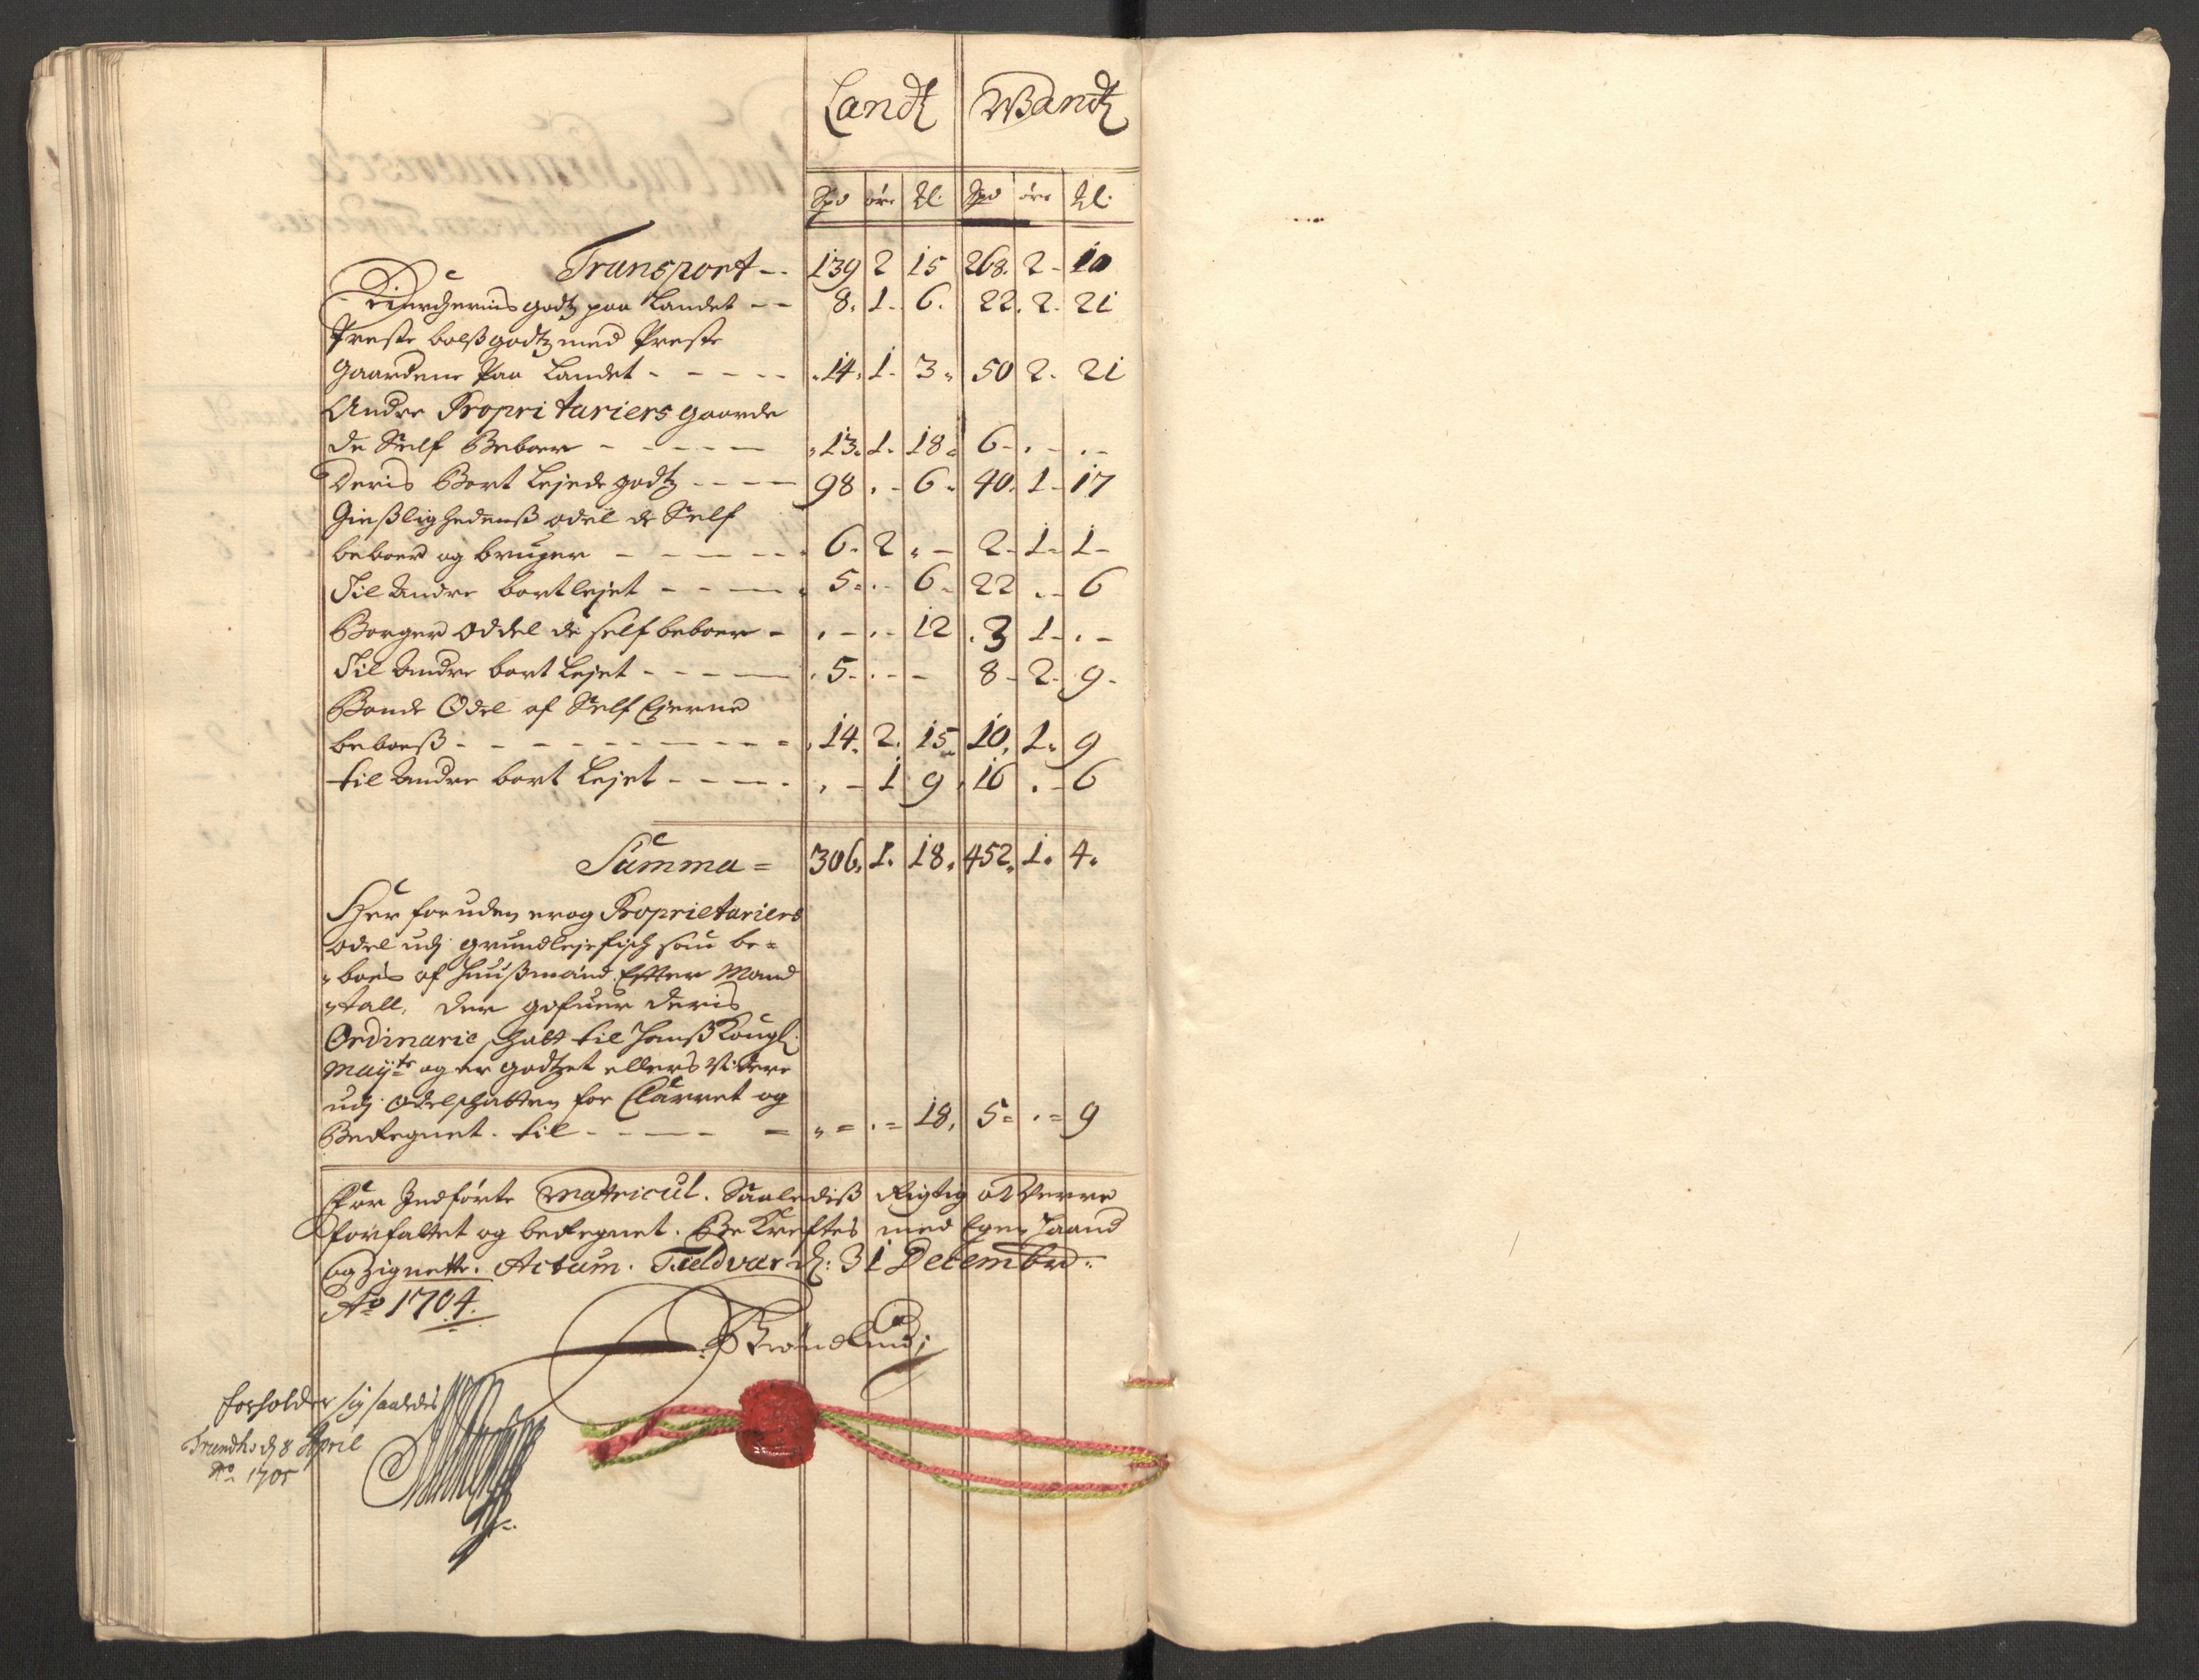 Landt Wandt
Spd öre Ml. Spd öre Ml.
Transport -- 139 2 15 268. 2 - 10
Kirchernis godtz paa Landet -- 8. 1. 6. 22. 2. 21
Preste bolß godtz med Preste
Gaardene Paa Landet - - - - 14. 1. 3. 50 2. 21
Andre Propritariers gaarde
de Self Beboer - - - - 13. 1. 18. 6 - . - . -
Deris Bort Lejede godtz - - - - 98 . - 6. 40. 1 - 17
Gießlighedenß odel de Self
beboer og bruger - - - - - 6. 2 . - 2 - 1 - 1 -
Til Andre bortlejet - - - - 5 - . - 6. 22 . - 6
Borger Oddel de self beboer - . - . - 12 . 3 1 - . -
Til Andre bort Lejet - - - - 5 - . - - 8 - 2 - 9 -
Bonde Odel af Self Ejerne
beboeß - - - - - - - - 14. 2. 15. 10. 1. 9
til Andre bort Lejet - - - - . - 1 9 . 16 . - 6
Summa = 306. 1. 18. 452. 1. 4.
Her foruden er og Proprietariers
odel udj grundlejefisch som be=
boes af huußmænd Efter Mand
tall, der gifuer deris
Ordinarie schatt til Hanß Kongl:
Mayts og er godtzet ellers
udj Odelschatten for Clarret og
Beregnet. til - - - - = . = . = 18. 5 = . = 9
For Indförte Matricul. Saalediß Rigtig at Verre
forfattet og beregnet. Bekreftes med Egen Haand
og Zignette. Actum. Tieldvar d: 31 Decembr:
Ao 1704.
forholder sig saaledis
Trundh. d 8 April
Ao 1705